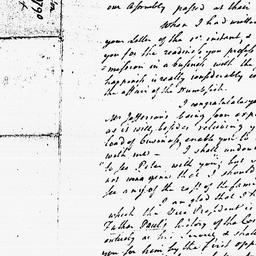 our Assembly passed at their
When I had written
your letter of the 1st instant, &
you for the readiness you profess
mission in a business with the
happiness is really considerably in
the affair of the
I congratulate you
Mr Jefferson's being soon exp
as it will, besides relieving y
load of business, enable you to
with me — I shall
to see Peter with you; but
not gone that I should
see any of the rest of the family
I am glad that
which the Vice President is
Father Paul's history of the Co
entirely at his Service & shall
you for him by the first opp
1790